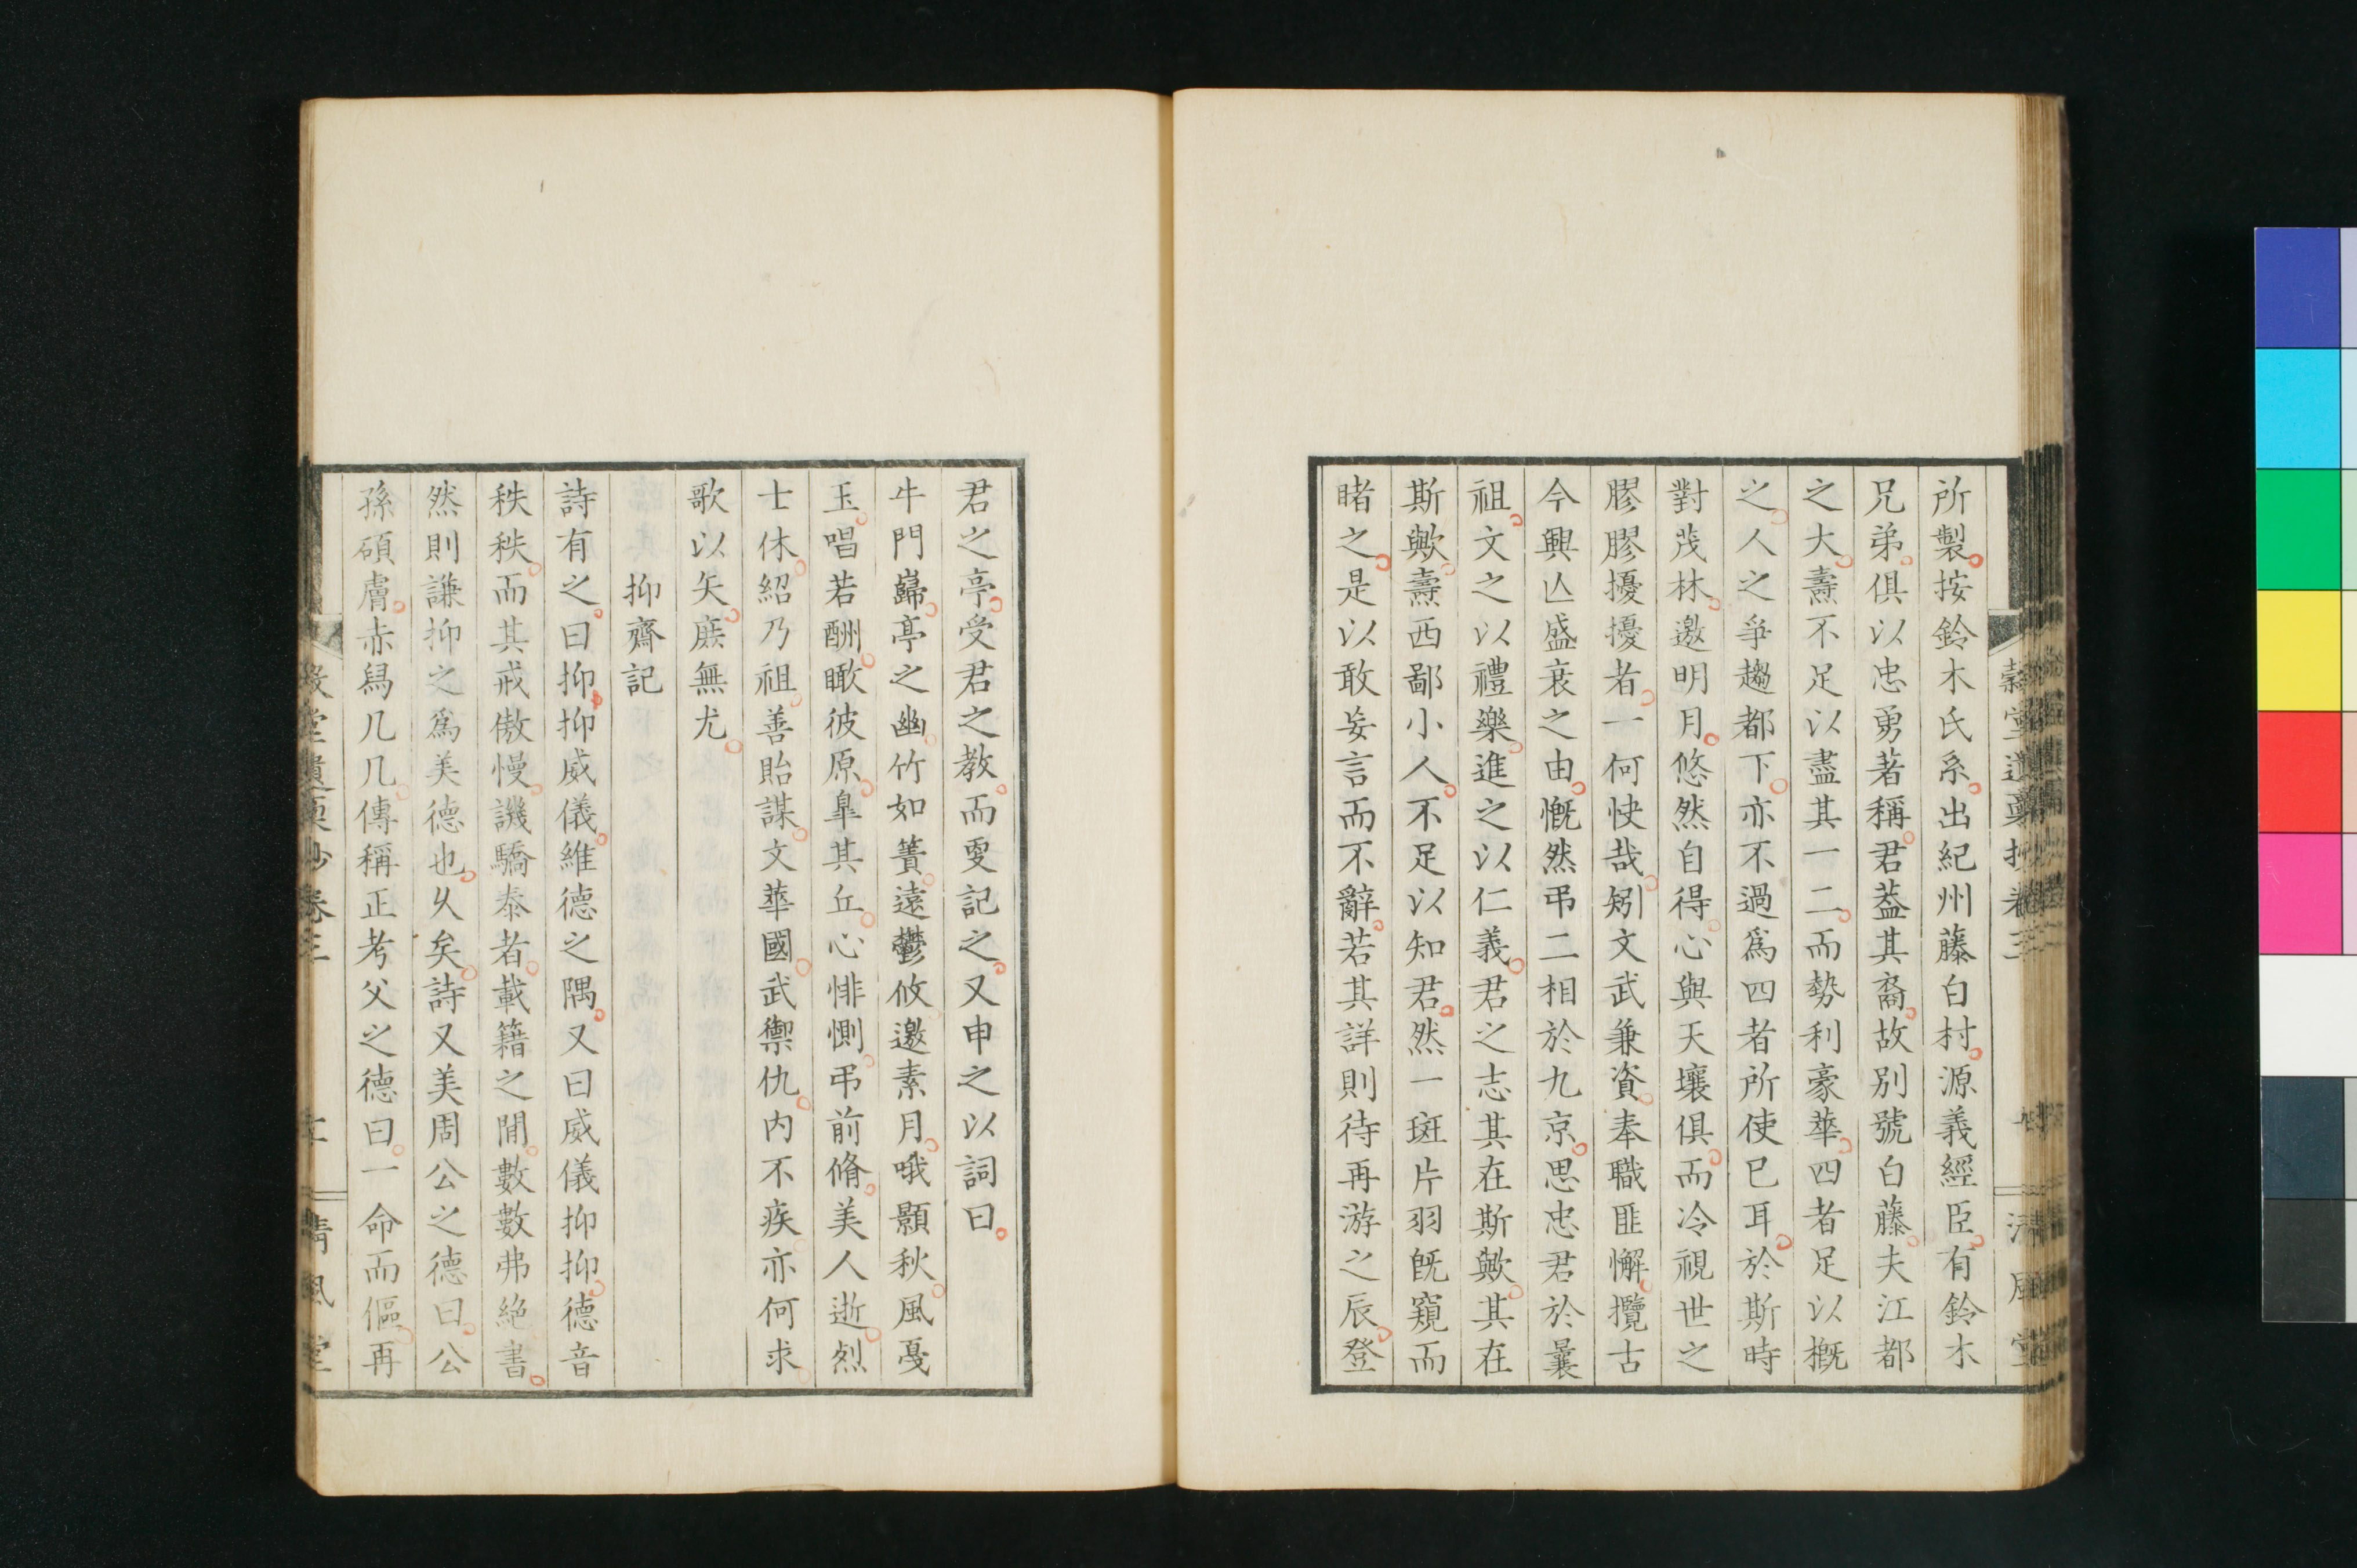 所製按鈴木氏系出紀州藤白村源義經臣有鈴木
兄弟俱以忠勇著稱君蓋其裔故別號白藤夫江都
之大燾不足以盡其一二而勢利豪華四者足以概
之人之爭趨都下亦不過爲四者所使已耳於斯時
對茂林邀明月悠然自得心與天壤俱而冷視世之
膠膠擾擾者一何快哉矧文武兼資奉職匪懈攬古
今興亾盛衰之由慨然弔二相於九京思忠君於曩
祖文之以禮樂進之以仁義君之志其在斯歟其在
斯歟燾西鄙小人不足以知君然一斑片羽既窺而
睹之是以敢妄言而不辭若其詳則待再游之辰登
君之亭受君之教而更記之又申之以詞曰
牛門巋亭之幽竹如簀遠鬱攸邀素月哦顥秋風戞
玉唱若酬瞰彼原皐其丘心悱惻弔前脩美人逝烈
士休紹乃祖善貽謀文華國武禦仇内不疾亦何求
歌以矢庶無尤
抑齋記
詩有之曰抑抑威儀維德之隅又曰威儀抑抑德音
秩秩而其戒傲慢譏驕泰者載籍之閒數數弗絶書
然則謙抑之爲美德也久矣詩又美周公之德曰公
孫碩膚赤舄几几傳稱正考父之德曰一命而傴再
穀堂遺稾抄卷三
清風堂